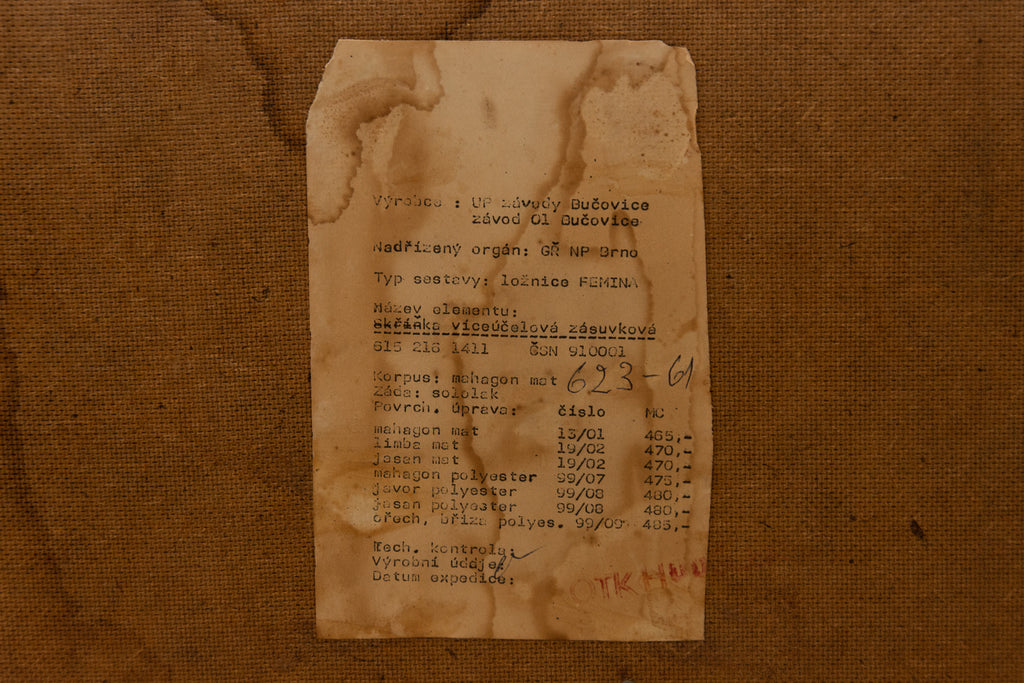 Výrobce : UP závody Bučovice
závod 01 Bučovice
Nadřízený orgán: GŘ NP Brno
Typ sestavy: ložnice FEMINA
Název elementu:
Skříňka víceúčelová zásuvková
615 216 1411 ČSN 910001
Korpus: mahagon mat 623-61
Záda: sololak
Povrch. úprava: číslo MC
mahagon mat 13/01 465,-
limba mat 19/02 470,-
jasan mat 19/02 470,-
mahagon polyester 99/07 475,-
javor polyester 99/08 480,-
jasan polyester 99/08 480,-
ořech, bříza polyes. 99/09 485,-
Tech. kontrola:
Výrobní údaje:
Datum expedice:
OTK